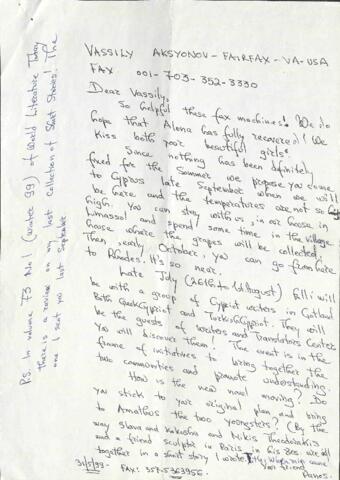 VASSILY AKSYONOV - FAIRFAX - VA - USA
FAX 001-703-352-3330
Dear Vassily,
So helpful these fax machines! We do
hope that Alena has fully recovered! We
kiss both your beautiful girls!
Since nothing has been definitely
fixed for the Summer we propose you come
to Cyprus late September when we will
be here and the temperatures are not so
high. You can stay with us, in our house in
Limassol and spend some time in the village
house where the grapes will be collected.
Then, early October, you can go from here
to Rhodes. It's so near.
Late July (26th to 1st August) I will
be with a group of Cypriot writers in Gotland
Both GreekCypriot and TurkishCypriot. They will
be the guests of Writers and Translators Center.
You will discover them! The event is in the
frame of initiatives to bring together the
two communities and promote understanding.
How is the new novel moving? Do
you stick to your original plan and bring
to Amathus the two youngsters? (By the
way Slava and Kukosha and Mikis Theodorakis
and a friend sculptor in Paris, in his 80s are all
together in a short story I wrote.
Your friend
Panos.
31/5/99- FAX: 357.5363956.
P.S. In volume 73 No 1 (winter 99) of World Literature Today
there is a review on my last collection of Short Stories. The
one I sent you last September